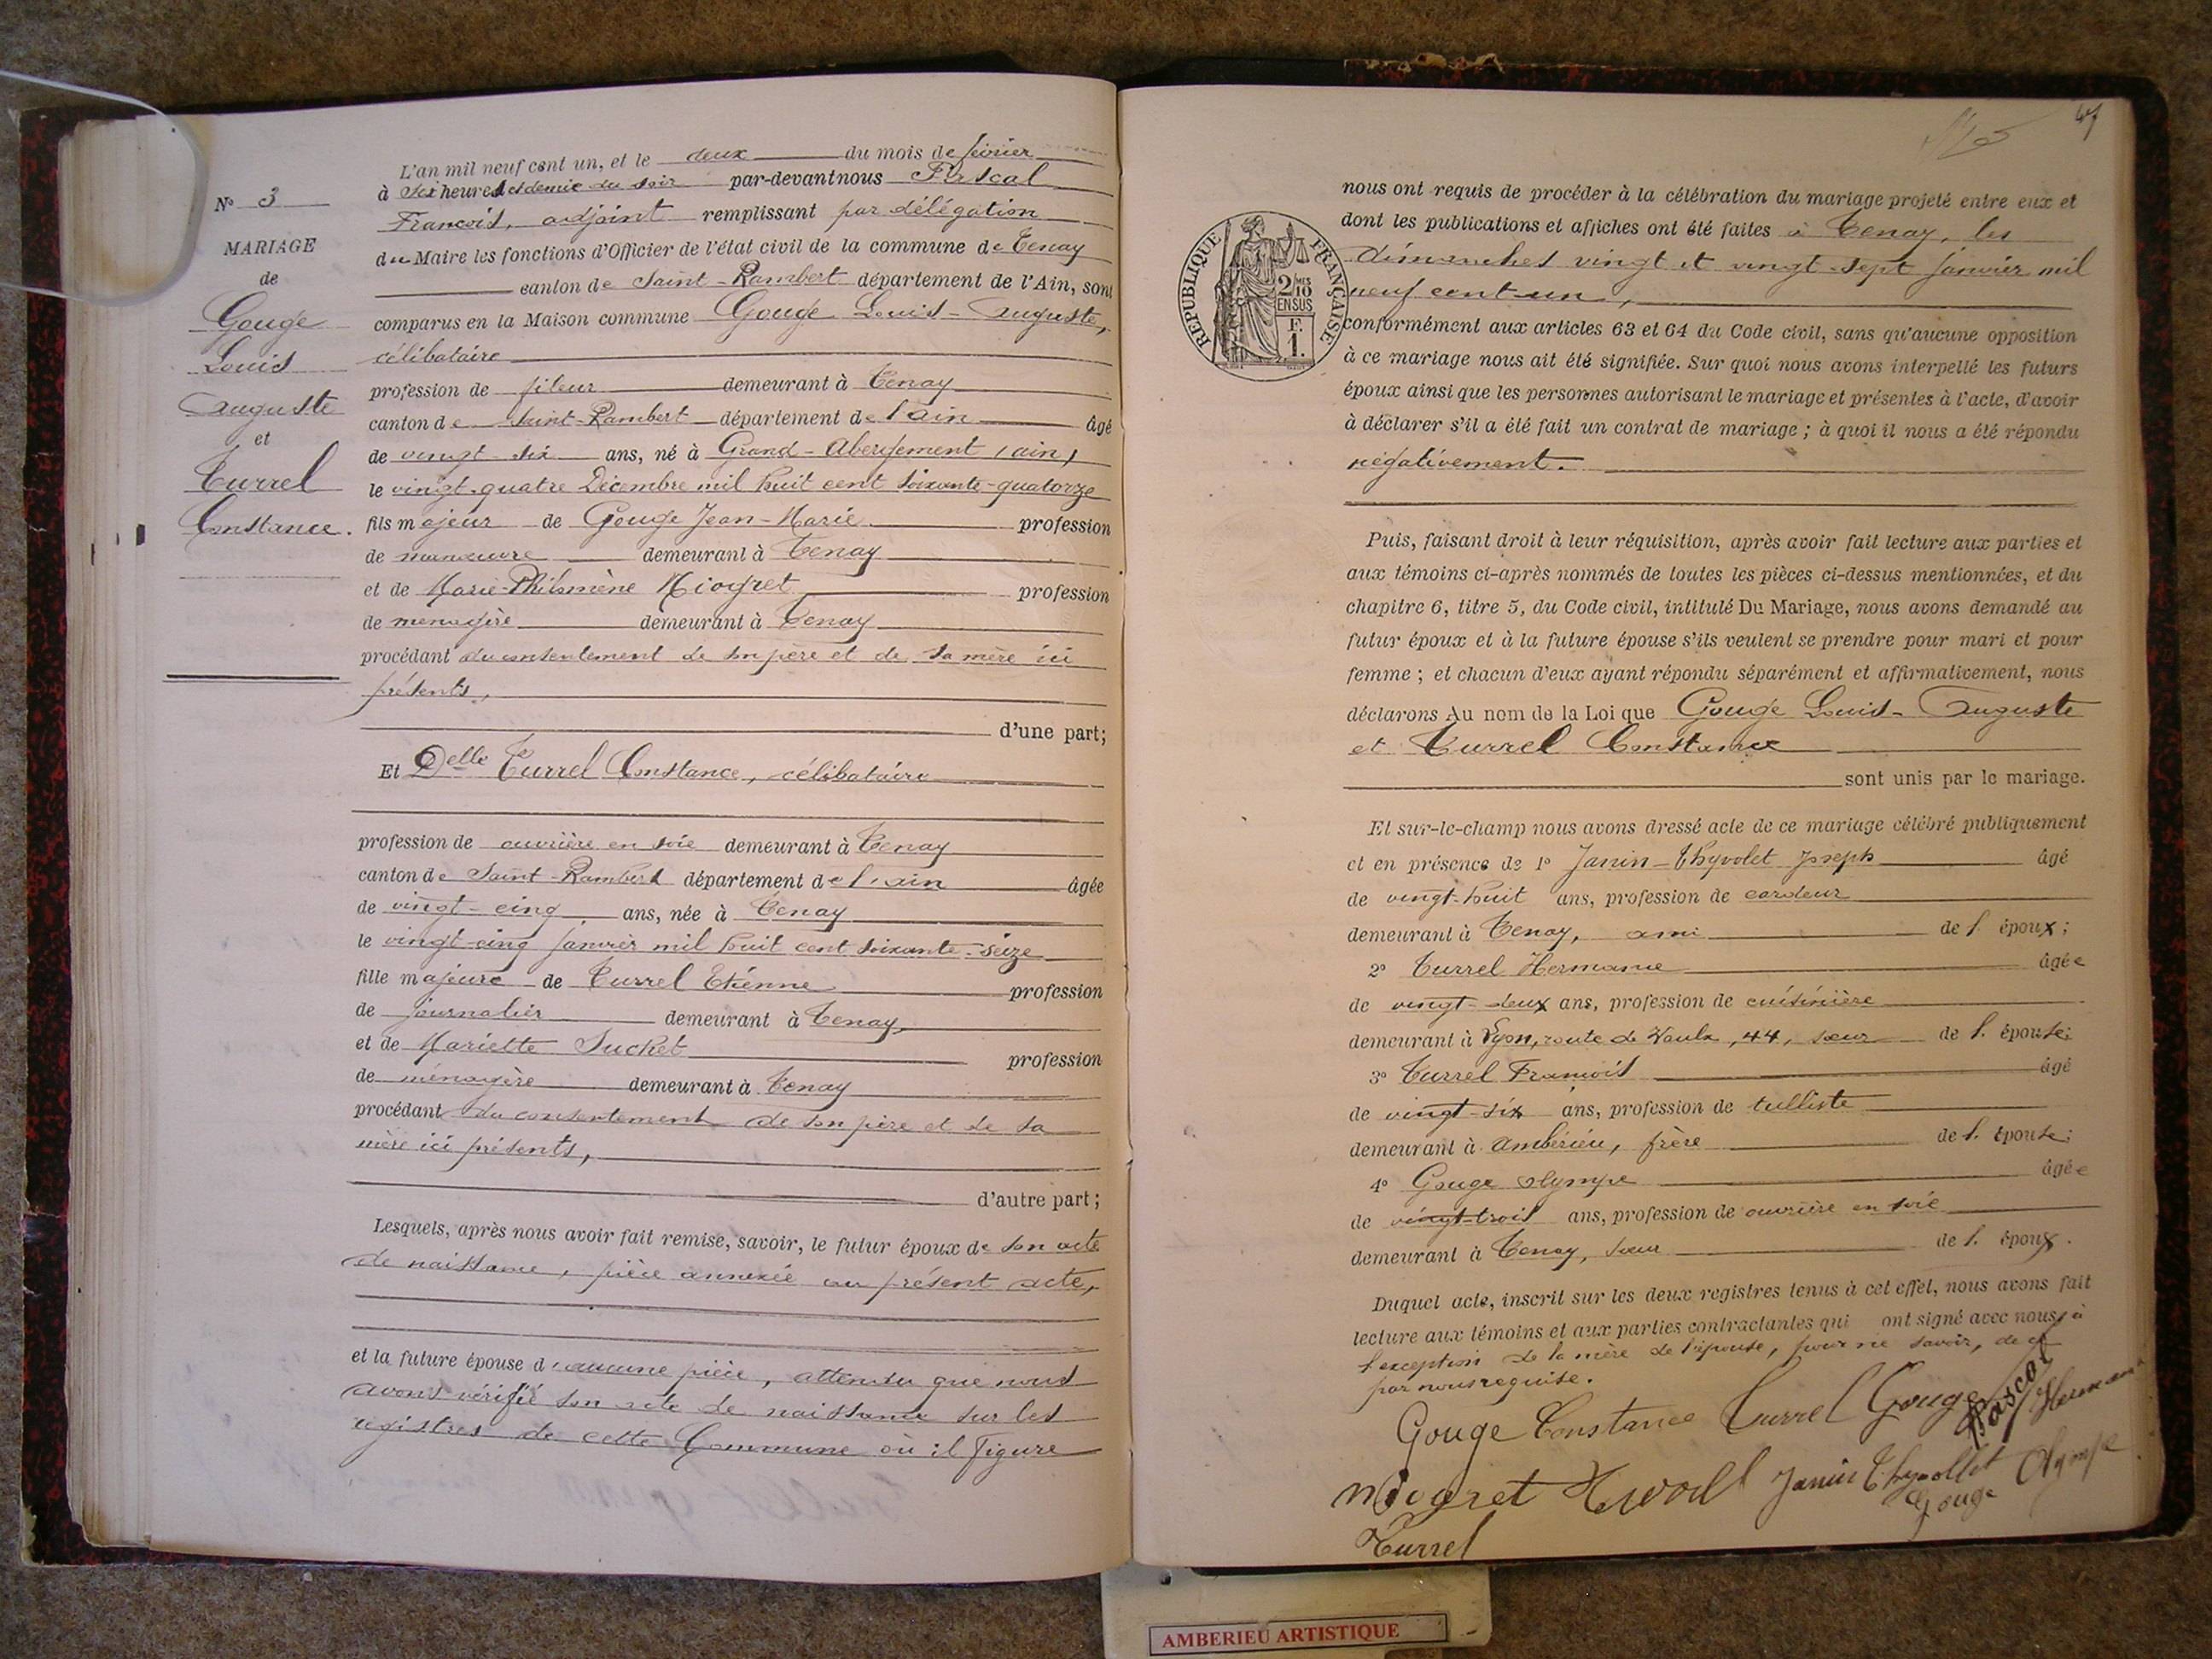 N° 3
MARIAGE
de
Gouge
Louis
Auguste
et
Turrel
Constance.
L'an mil neuf cent un, et le deux du mois de février
à six heures et demie du soir par-devant nous Pascal
François, adjoint remplissant par délégation
du Maire les fonctions d'Officier de l'état civil de la commune de Tenay
canton de Saint-Rambert département de l'Ain, sont
comparus en la Maison commune Gouge Louis-Auguste,
célibataire
profession de fileur demeurant à Tenay
canton de Saint-Rambert département de l'ain âgé
de vingt-six ans, né à Grand-Abergement (ain)
le vingt-quatre Décembre mil huit cent soixante-quatorze
fils majeur de Gouge Jean-Marie profession
de manœuvre demeurant à Tenay
et de Marie-Philomène Niogret profession
de menagère demeurant à Tenay
procédant du consentement de son père et de sa mère ici
présents,
d'une part;
Et Delle Turrel Constance, célibataire
profession de ouvrière en soie demeurant à Tenay
canton de Saint-Rambert département de l'ain âgée
de vingt-cinq ans, née à Tenay
le vingt-cinq janvier mil huit cent soixante-seize
fille majeure de Turrel Etienne profession
de journalier demeurant à Tenay,
et de Mariette Suchet profession
de ménagère demeurant à Tenay
procédant du consentement de son père et de sa
mère ici présents,
d'autre part;
Lesquels, après nous avoir fait remise, savoir, le futur époux de son acte
de naissance, pièce annexée au présent acte,
et la future épouse d'aucune pièce, attendu que nous
avons vérifié son acte de naissance sur les
registres de cette Commune où il figure
47
RÉPUBLIQUE FRANÇAISE
2/10MES
EN SUS
F.
1.
nous ont requis de procéder à la célébration du mariage projeté entre eux et
dont les publications et affiches ont été faites à Tenay, les
dimanches vingt et vingt-sept janvier mil
neuf cent un,
conformément aux articles 63 et 64 du Code civil, sans qu'aucune opposition
à ce mariage nous ait été signifiée. Sur quoi nous avons interpellé les futurs
époux ainsi que les personnes autorisant le mariage et présentes à l'acte, d'avoir
à déclarer s'il a été fait un contrat de mariage ; à quoi il nous a été répondu
négativement.
Puis, faisant droit à leur réquisition, après avoir fait lecture aux parties et
aux témoins ci-après nommés de toutes les pièces ci-dessus mentionnées, et du
chapitre 6, titre 5, du Code civil, intitulé Du Mariage, nous avons demandé au
futur époux et à la future épouse s'ils veulent se prendre pour mari et pour
femme ; et chacun d'eux ayant répondu séparément et affirmativement, nous
déclarons Au nom de la Loi que Gouge Louis-Auguste
et Turrel Constance
sont unis par le mariage.
Et sur-le-champ nous avons dressé acte de ce mariage célébré publiquement
et en présence de 1° Janin-Thyvolet Joseph âgé
de vingt-huit ans, profession de cardeur
demeurant à Tenay, ami de l'époux;
2° Turrel Hermanie âgée
de vingt-deux ans, profession de cuisinière
demeurant à Lyon, route de Vaulx, 44, sœur de l'épouse;
3° Turrel François âgé
de vingt-six ans, profession de tulliste
demeurant à Ambérieu, frère de l'épouse;
4° Gouge Olympe âgée
de vingt-trois ans, profession de ouvrière en soie
demeurant à Tenay, sœur de l'époux.
Duquel acte, inscrit sur les deux registres tenus à cet effet, nous avons fait
lecture aux témoins et aux parties contractantes qui ont signé avec nous, à
l'exception de la mère de l'épouse, pour ne savoir, de ce
par nous requise.
Gouge Constance Turrel Gouge Pascal
Niogret Janin Thyvollet Gouge Olympe
Turrel
AMBERIEU ARTISTIQUE